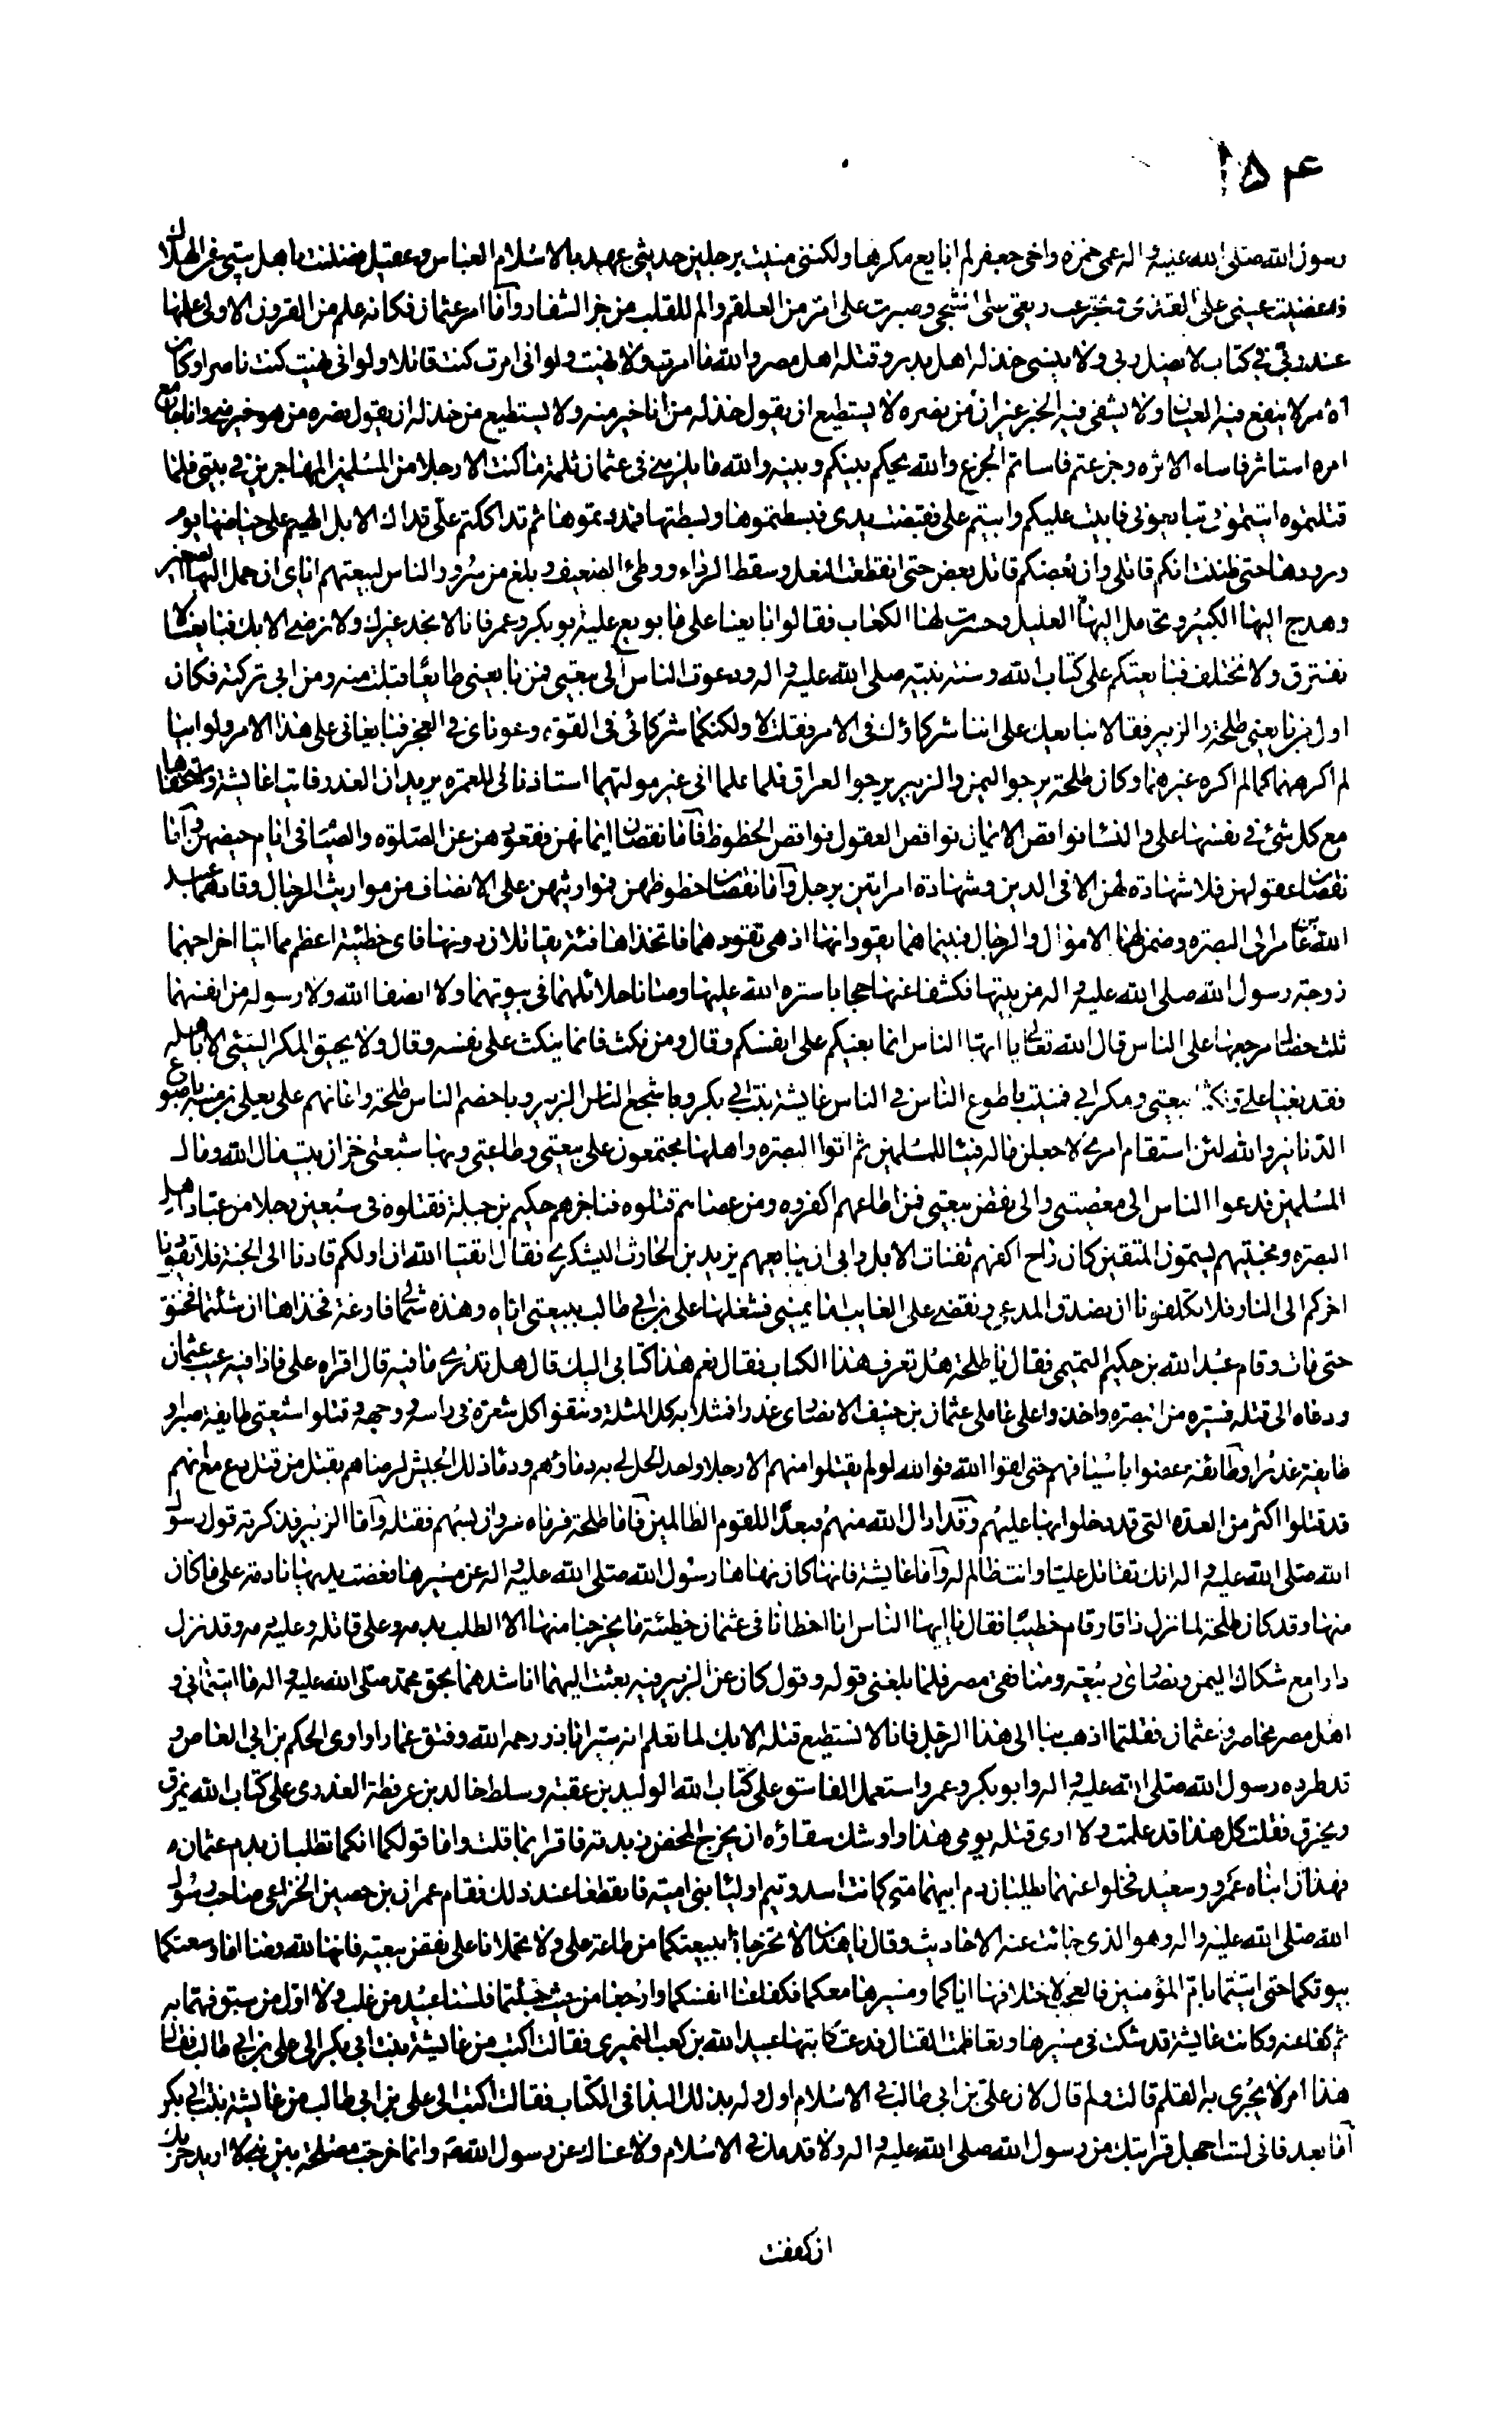 ١٥٤
رسول الله صلى الله عليه واله عمى حمزه واخى جعفر لم ابايع مكرها ولكننى منيت برجلين حديثى عهد بالاسلام العباس وعقيل فضننت باهل بيتى عن الهلاك
فاغضيت عينى على القذى وتجرعت ريقى على الشجى وصبرت على امر من العلقم والم للقلب من حز الشفار واما امر عثمان فكانه علم من القرون الاولى علمها
عند ربى فى كتاب لا يضل ربى ولا ينسى خذله اهل بدر وقتله اهل مصر والله ما امرت ولا نهيت ولو انى امرت كنت قاتلا ولو انى نهيت كنت ناصرا وكان
الامر لا ينفع فيه العيان ولا يشفى فيه الخبر غير ان من نصره لا يستطيع ان يقول خذله من انا خير منه ولا يستطيع من خذله ان يقول نصره من هو خير منى وانا جامع
امره استاثر فاساء الاثره وجزعتم فاساتم الجزع والله يحكم بينكم وبينه والله ما يلزمنى فى عثمان ثلمة ما كنت الا رجلا من المسلمين المهاجرين فى بيتى فلما
قتلتموه اتيتمونى تبايعونى فابيت عليكم وابيتم على فقبضت يدى فبسطتموها وبسطتها فمددتموها ثم تداككتم على تداك الابل الهيم على حياضها يوم
ورودها حتى ظننت انكم قاتلى وان بعضكم قاتل بعض حتى انقطعت النعل وسقط الرداء ووطئ الضعيف وبلغ من سرور الناس ببيعتهم اياى ان حمل اليها الصغير
وهدج اليها الكبير وتحامل اليها العليل وحسرت لها الكعاب فقالوا بايعنا على ما بويع عليه ابو بكر وعمر فانا لا نجد غيرك ولا نرضى الا بك فبايعنا لا
نفترق ولا نختلف فبايعتكم على كتاب الله وسنة نبيه صلى الله عليه واله ودعوت الناس الى بيعتى فمن بايعنى طايعا قبلت منه ومن ابى تركته فكان
اول من بايعنى طلحة والزبير فقالا نبايعك على اننا شركاؤك فى الامر فقلت لا ولكنكما شركائى فى القوة وعوناى فى العجز فبايعانى على هذا الامر ولو ابيا
لم اكرههما كما لم اكره غيرهما وكان طلحة يرجوا اليمن والزبير يرجوا العراق فلما علما انى غير موليهما استاذنانى للعمره يريدان الغدر فاتيا عايشة واستخفاها
مع كل شئ فى نفسها على والنسا نواقص الايمان نواقص العقول نواقص الحظوظ فاما نقصان ايمانهن فقعودهن عن الصلوة والصيام فى ايام حيضهن واما
نقصان عقولهن فلا شهادة لهن الا فى الدين وشهادة امراتين برجل واما نقصان حظوظهن فمواريثهن على الانصاف من مواريث الرجال وقادهما عبد
الله بن عامر الى البصره وضمن لهما الاموال والرجال فبينما هما يقودانها اذ هى تقودهما فاتخذاها فئة يقاتلان دونها فاى خطيئة اعظم مما اتيا اخراجهما
زوجة رسول الله صلى الله عليه واله من بيتها فكشفا عنها حجابا ستره الله عليها وصانا حلائلهما فى بيوتهما ولا انصفا الله ولا رسوله من انفسهما
ثلث خصال مرجعها على الناس قال الله تعالى يا ايها الناس انما بغيكم على انفسكم وقال ومن نكث فانما ينكث على نفسه وقال ولا يحيق المكر السيئ الا باهله
فقد بغيا على ونكثا بيعتى ومكرا بى فمنيت باطوع الناس فى الناس عايشة بنت ابى بكر وباشجع الناس الزبير وباخصم الناس طلحة واعانهم على يعلى بن منيه باصوع
الدنانير والله لئن استقام امرى لاجعلن ماله فيئا للمسلمين ثم اتوا البصره واهلها مجتمعون على بيعتى وطاعتى وبها شيعتى خزان بيت مال الله ومال
المسلمين فدعوا الناس الى معصيتى والى نقض بيعتى فمن اطاعهم اكفروه ومن عصاهم قتلوه فناجزهم حكيم بن جبلة فقتلوه فى سبعين رجلا من عباد اهل
البصره ومخبتيهم يسمون المتقين كان راح اكفهم ثفنات الابل وابى ان يبايعهم يزيد بن الحارث اليشكرى فقال اتقيا الله ان اولكم قادنا الى الجنة فلا يقودنا
اخركم الى النار فلا تكلفونا ان نصدق المدعى ونقضى على الغايب اما يمينى فشغلها على بن ابى طالب ببيعتى اياه وهذه شمالى فارغة فخذاها ان شئتما فخنق
حتى مات وقام عبد الله بن حكيم التميمى فقال يا طلحة هل تعرف هذا الكتاب فقال نعم هذا كتابى اليك قال هل تدرى ما فيه قال اقراه على فاذا فيه عيب عثمان
ودعاه الى قتله فسيره من البصره واخذوا على عاملى عثمان بن حنيف الانصارى غدرا فمثلا به كل المثلة ونتفوا كل شعرة فى راسه ووجهه وقتلوا شيعتى طايفة صبرا و
طايفة غدرا وطائفة عضوا باسيافهم حتى لقوا الله فوالله لو لم يقتلوا منهم الا رجلا واحدا لحل لى به دماؤهم ودماء ذلك الجيش لرضاهم بقتل من قتل دع مع انهم
قد قتلوا اكثر من العدة التى قد دخلوا بها عليهم وقد ادال الله منهم فبعدا للقوم الظالمين فاما طلحة فرماه مروان بسهم فقتله واما الزبير فذكرته قول رسول
الله صلى الله عليه واله انك تقاتل عليا وانت ظالم له واما عايشة فانها كان نهاها رسول الله صلى الله عليه واله عن مسيرها فعضت يديها نادمة على ما كان
منها وقد كان طلحة لما نزل ذاقار قام خطيبا فقال يا ايها الناس انا اخطانا فى عثمان خطيئة ما يخرجنا منها الا الطلب بدمه وعلى قاتله وعليه دمه وقد نزل
دارا مع شكاك اليمن ونصارى ربيعة ومنافقى مصر فلما بلغنى قوله وقول كان عن الزبير فيه بعثت اليهما اناشدهما بحق محمد صلى الله عليه واله ما اتيتمانى و
اهل مصر محاصروا عثمان فقلتما اذهب بنا الى هذا الرجل فانا لا نستطيع قتله الا بك لما تعلم انه سير اباذر رحمه الله وفتق عمارا واوى الحكم بن ابى العاص و
قد طرده رسول الله صلى الله عليه واله وابو بكر وعمر واستعمل الفاسق على كتاب الله الوليد بن عقبة وسلط خالد بن عرفطة العذرى على كتاب الله يمزق
ويخرق فقلت كل هذا قد علمت ولا ارى قتله يومى هذا واوشك سقاؤه ان يخرج المخض زبدته فاقرا بما قلت واما قولكما انكما تطلبان بدم عثمان
فهذان ابناه عمرو وسعيد فخلوا عنهما يطلبان دم ابيهما متى كانت اسد وتيم اوليا بنى امية فانقطعا عند ذلك فقام عمران بن حصين الخزاعى صاحب رسول
الله صلى الله عليه واله وهو الذى جائت عنه الاحاديث وقال يا هذان لا تخرجانا ببيعتكما من طاعة على ولا تحملانا على نقض بيعته فانها لله رضا اما وسعتكما
بيوتكما حتى اتيتما بام المؤمنين فالعجب لاختلافها اياكما ومسيرها معكما فكفا عنا انفسكما وارجعا من حيث جئتما فلسنا عبيد من غلب ولا اول من سبق فهما به
ثم كفا عنه وكانت عايشة قد شكت فى مسيرها وتعاظمت القتال فدعت كاتبها عبيد الله بن كعب النميرى فقالت اكتب من عايشة بنت ابى بكر الى على بن ابى طالب فقال
هذا امر لا يجرى به القلم قالت ولم قال لان على بن ابى طالب فى الاسلام اول وله بذلك البدا فى الكتاب فقالت اكتب الى على بن ابى طالب من عايشة بنت ابى بكر
اما بعد فانى لست اجهل قرابتك من رسول الله صلى الله عليه واله ولا قدمك فى الاسلام ولا غناك عن رسول الله ص وانما خرجت مصلحة بين بنى لا اريد حربك
ان كففت